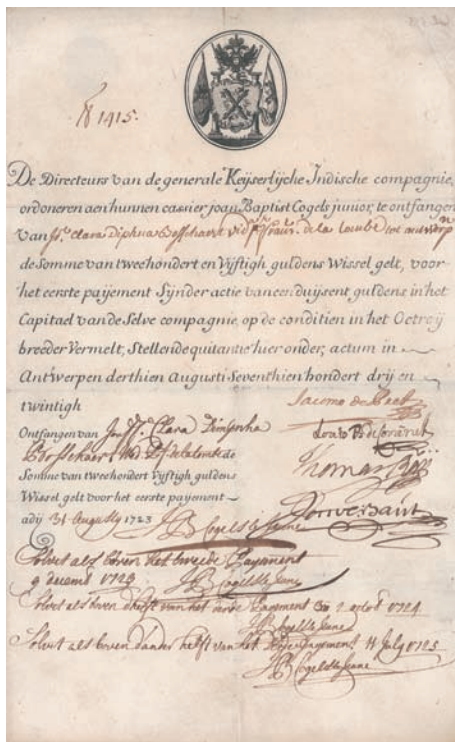 N 1415.
De Directeurs van de generale Keyserlijche Indische compagnie,
ordoneren aen hunnen cassier joan Baptist Cogels junior, te ontfangen
van Clara Diphna Bosschaert de la tot antwerp
de Somme van tweehondert en Vijftigh guldens Wissel gelt, voor
het eerste payement Sijnder actie van een duijsent guldens in het
Capitael van de Selve compagnie, op de conditien in het Octroij
breeder Vermelt, Stellende quitantie hier onder, actum in
Antwerpen derthien Augusti Seventhien hondert drij en
twintigh
Ontfangen van Clara Dimpnha
Bosschaert de
Somme van tweehondert Vijftigh guldens
Wissel gelt voor het eerste payement
adij 31 Augusty 1723 JB Cogels le Jeune
Jacomo de
Thomas
Solvit als boven het tweede Payement
9 decemb 1723. JB Cogels le Jeune
Solvit als boven d'helft van het Payement 2 octob 1724
JB Cogels le Jeune
Solvit als boven d'ander helft van het Payement July 1725
JB Cogels le Jeune